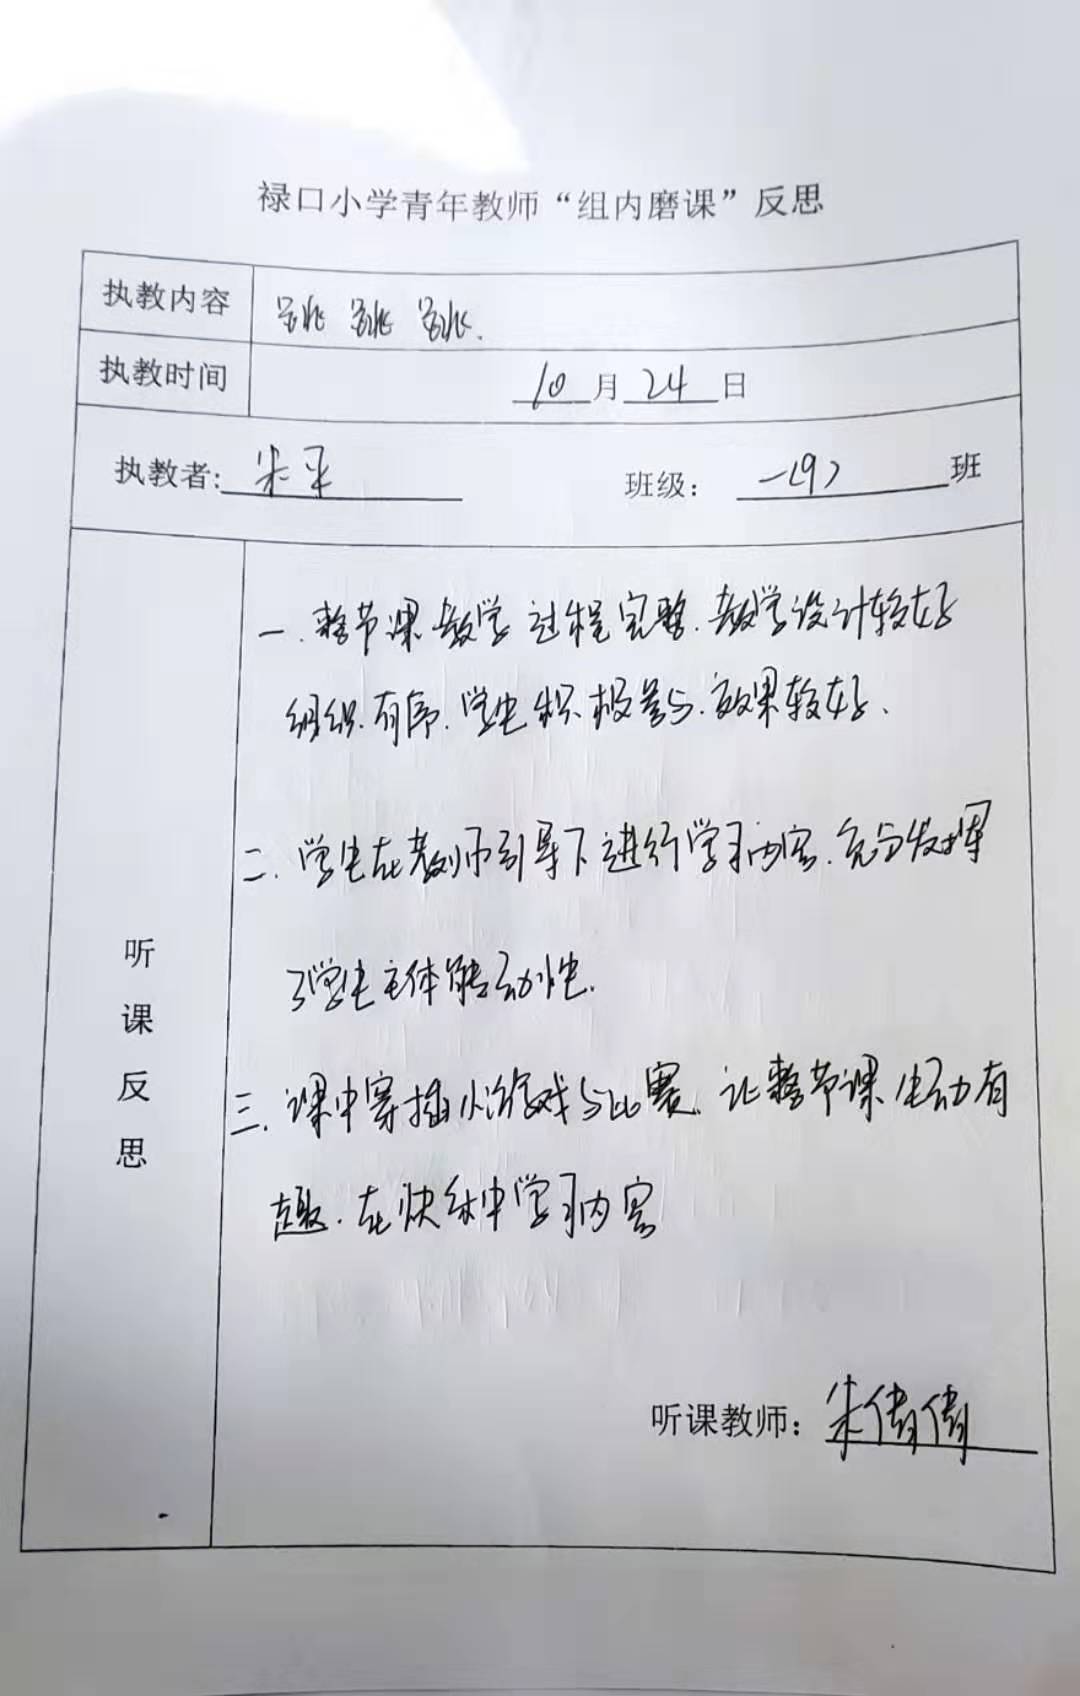 禄口小学青年教师“组内磨课”反思
执教内容 跳 跳 跳.
执教时间 10月24日
执教者: 朱平 班级: 一(9) 班
听课反思
一.整节课教学过程完整.教学设计较好
组织有序.学生积极参与.效果较好.
二.学生在教师引导下进行学习内容.充分发挥
了学生主体能动性.
三.课中穿插小游戏与比赛.让整节课生动有
趣.在快乐中学习内容
听课教师: 朱倩倩